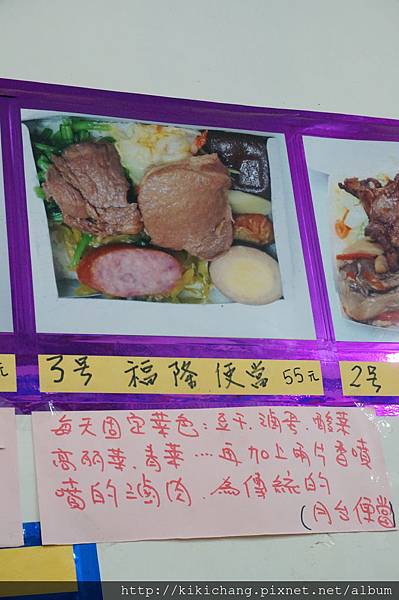 元
3号 福隆便當 55元
2号
每天固定菜色:豆干.滷蛋.酸菜
高丽菜.青菜…再加上兩片香噴
噴的滷肉.為傳統的
(月台便當)
http://kikichang.pixnet.net/album